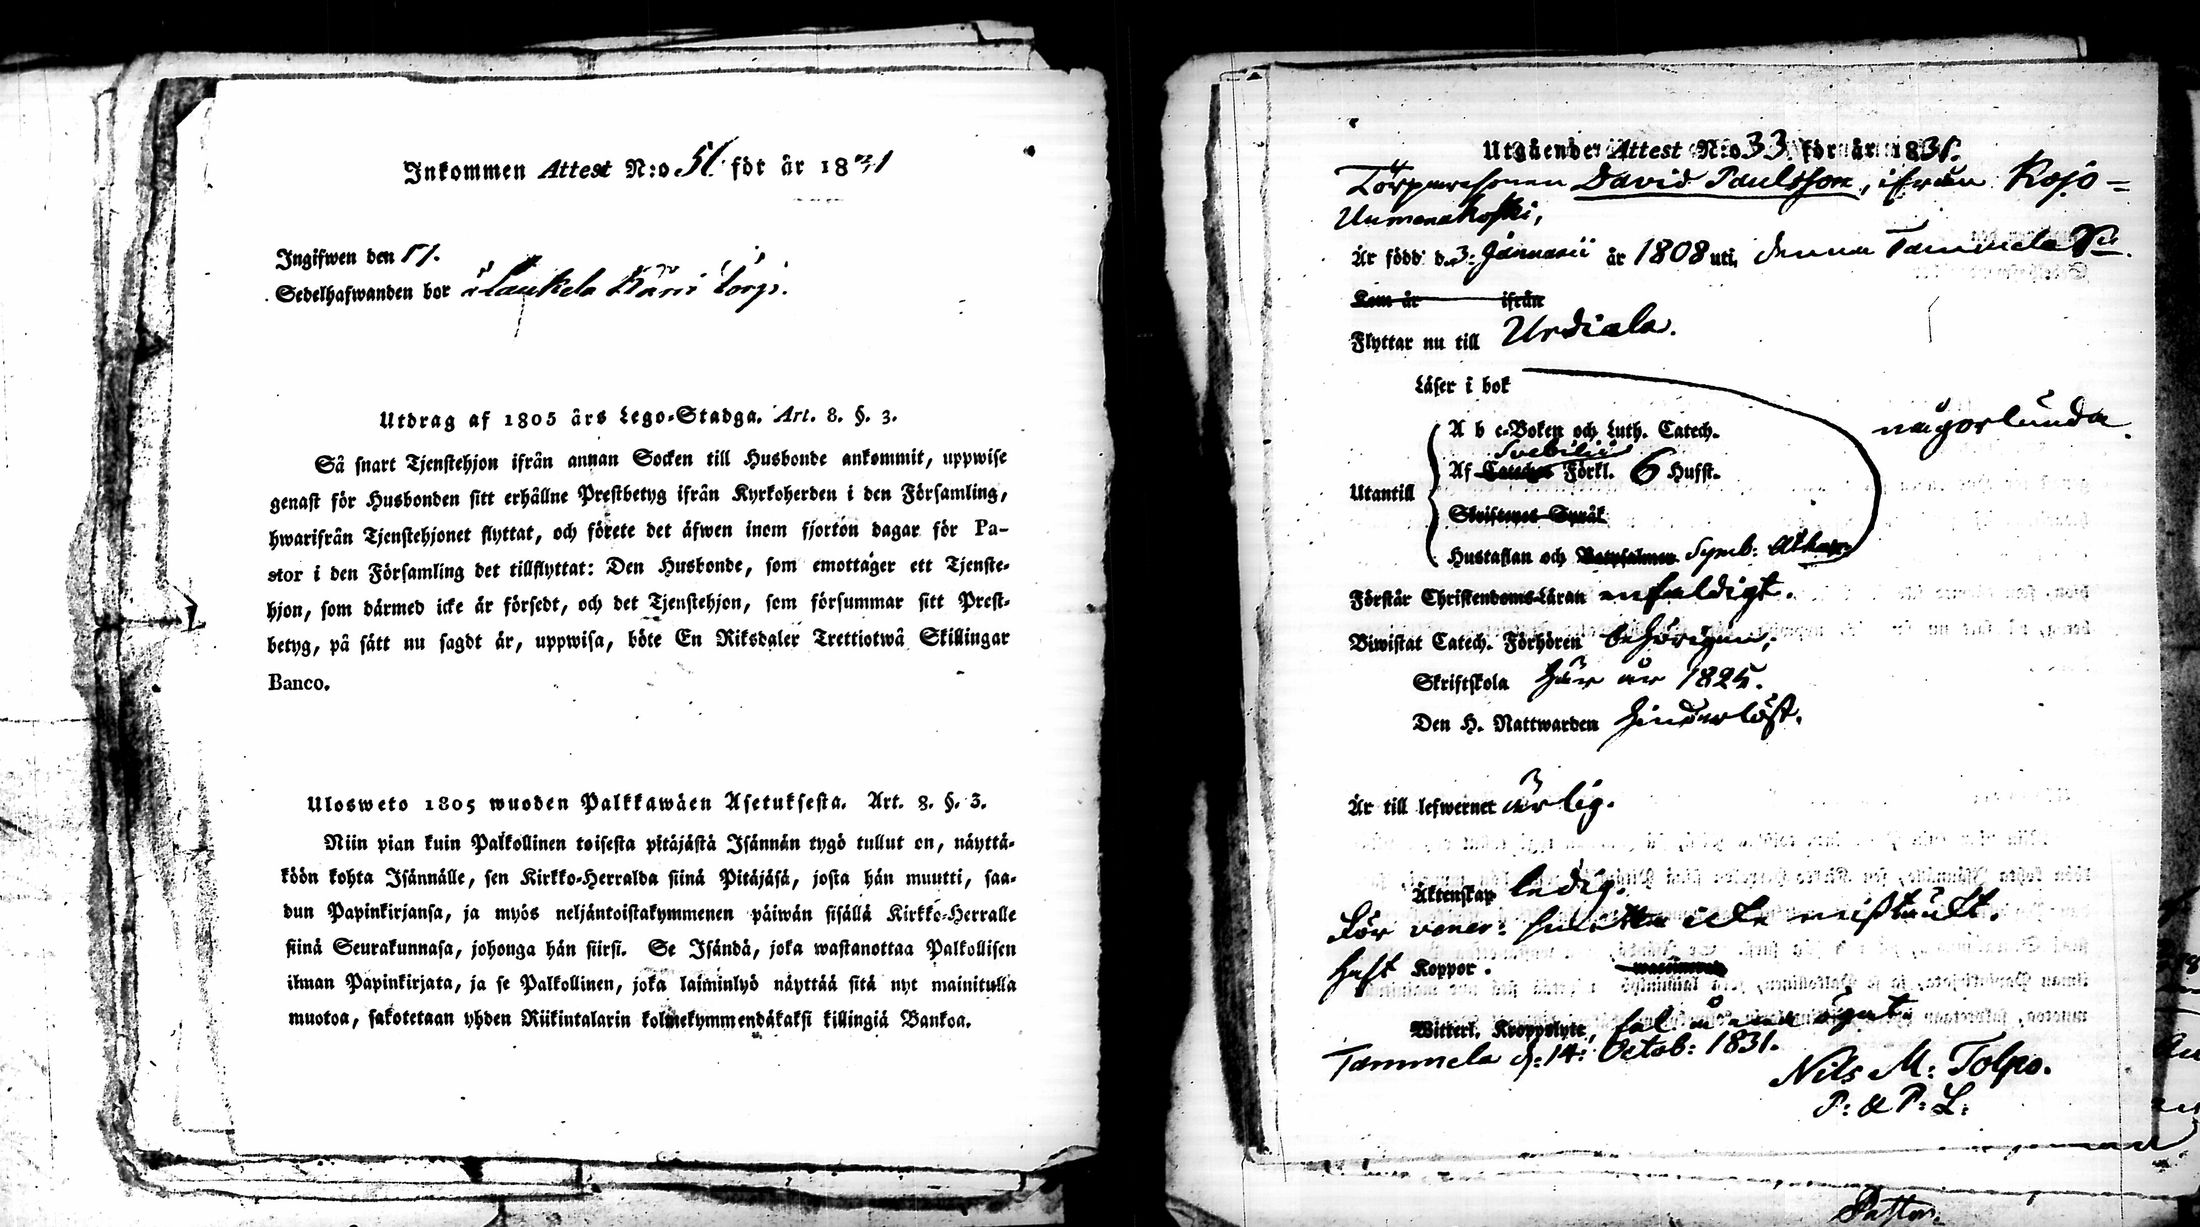 Inkommen Attest N:o 51. för år 1831
Ingifwen den 17.
Sedelhafwanden bor i Laukela Käri Torp.
Utdrag af 1805 års Lego-Stadga. Art. 8. §. 3.
Så snart Tjenstehjon ifrån annan Socken till Husbonde ankommit, uppwise
genast för Husbonden sitt erhållne Prestbetyg ifrån Kyrkoherden i den Församling,
hwarifrån Tjenstehjonet flyttat, och förete det äfwen inom fjorton dagar för Pa-
stor i den Församling det tillflyttat: Den Husbonde, som emottager ett Tjenste-
hjon, som därmed icke är försedt, och det Tjenstehjon, som försummar sitt Prest-
betyg, på sätt nu sagdt är, uppwisa, böte En Riksdaler Trettiotwå Skillingar
Banco.
Ulosweto 1805 wuoden Palkkawäen Asetuksesta. Art. 8. §. 3.
Niin pian kuin Palkollinen toisesta pitäjästä Isännän tygö tullut on, näyttä-
köön kohta Isännälle, sen Kirkko-Herralda siinä Pitäjäsä, josta hän muutti, saa-
dun Papinkirjansa, ja myös neljäntoistakymmenen päiwän sisällä Kirkko-Herralle
siinä Seurakunnasa, johonga hän siirsi. Se Isändä, joka wastanottaa Palkollisen
ilman Papinkirjata, ja se Palkollinen, joka laiminlyö näyttää sitä nyt mainitulla
muotoa, sakotetaan yhden Riikintalarin kolmekymmendäkaksi killingiä Bankoa.
Utgående Attest N:o 33. för år 1831.
David Paulsson, ifrån Kojo-
Är född d. 3: Januarii år 1808 uti denna Tammela
Kom år ifrån
Flyttar nu till Urdiala.
Läser i bok
A b c-Boken och Luth. Catech.
någorlunda.
Svebilii
Af Förkl. 6 Hufst.
Utantill
Skriftenes Språk
Hustaflan och Botpsalmen Symb: Athan:
Förstår Christendoms-Läran enfaldigt.
Biwistat Catech. Förhören behörigen;
Skriftskola här år 1825.
Den H. Nattwarden hinderlöst.
Är till lefwernet ärlig.
Äktenskap ledig.
För vener: smitta icke misstänkt.
Haft Koppor.
Witterl. Kroppslyte,
Tammela d: 14: Octob: 1831.
Nils M: Tolpo.
P: & P: L:
Pastor